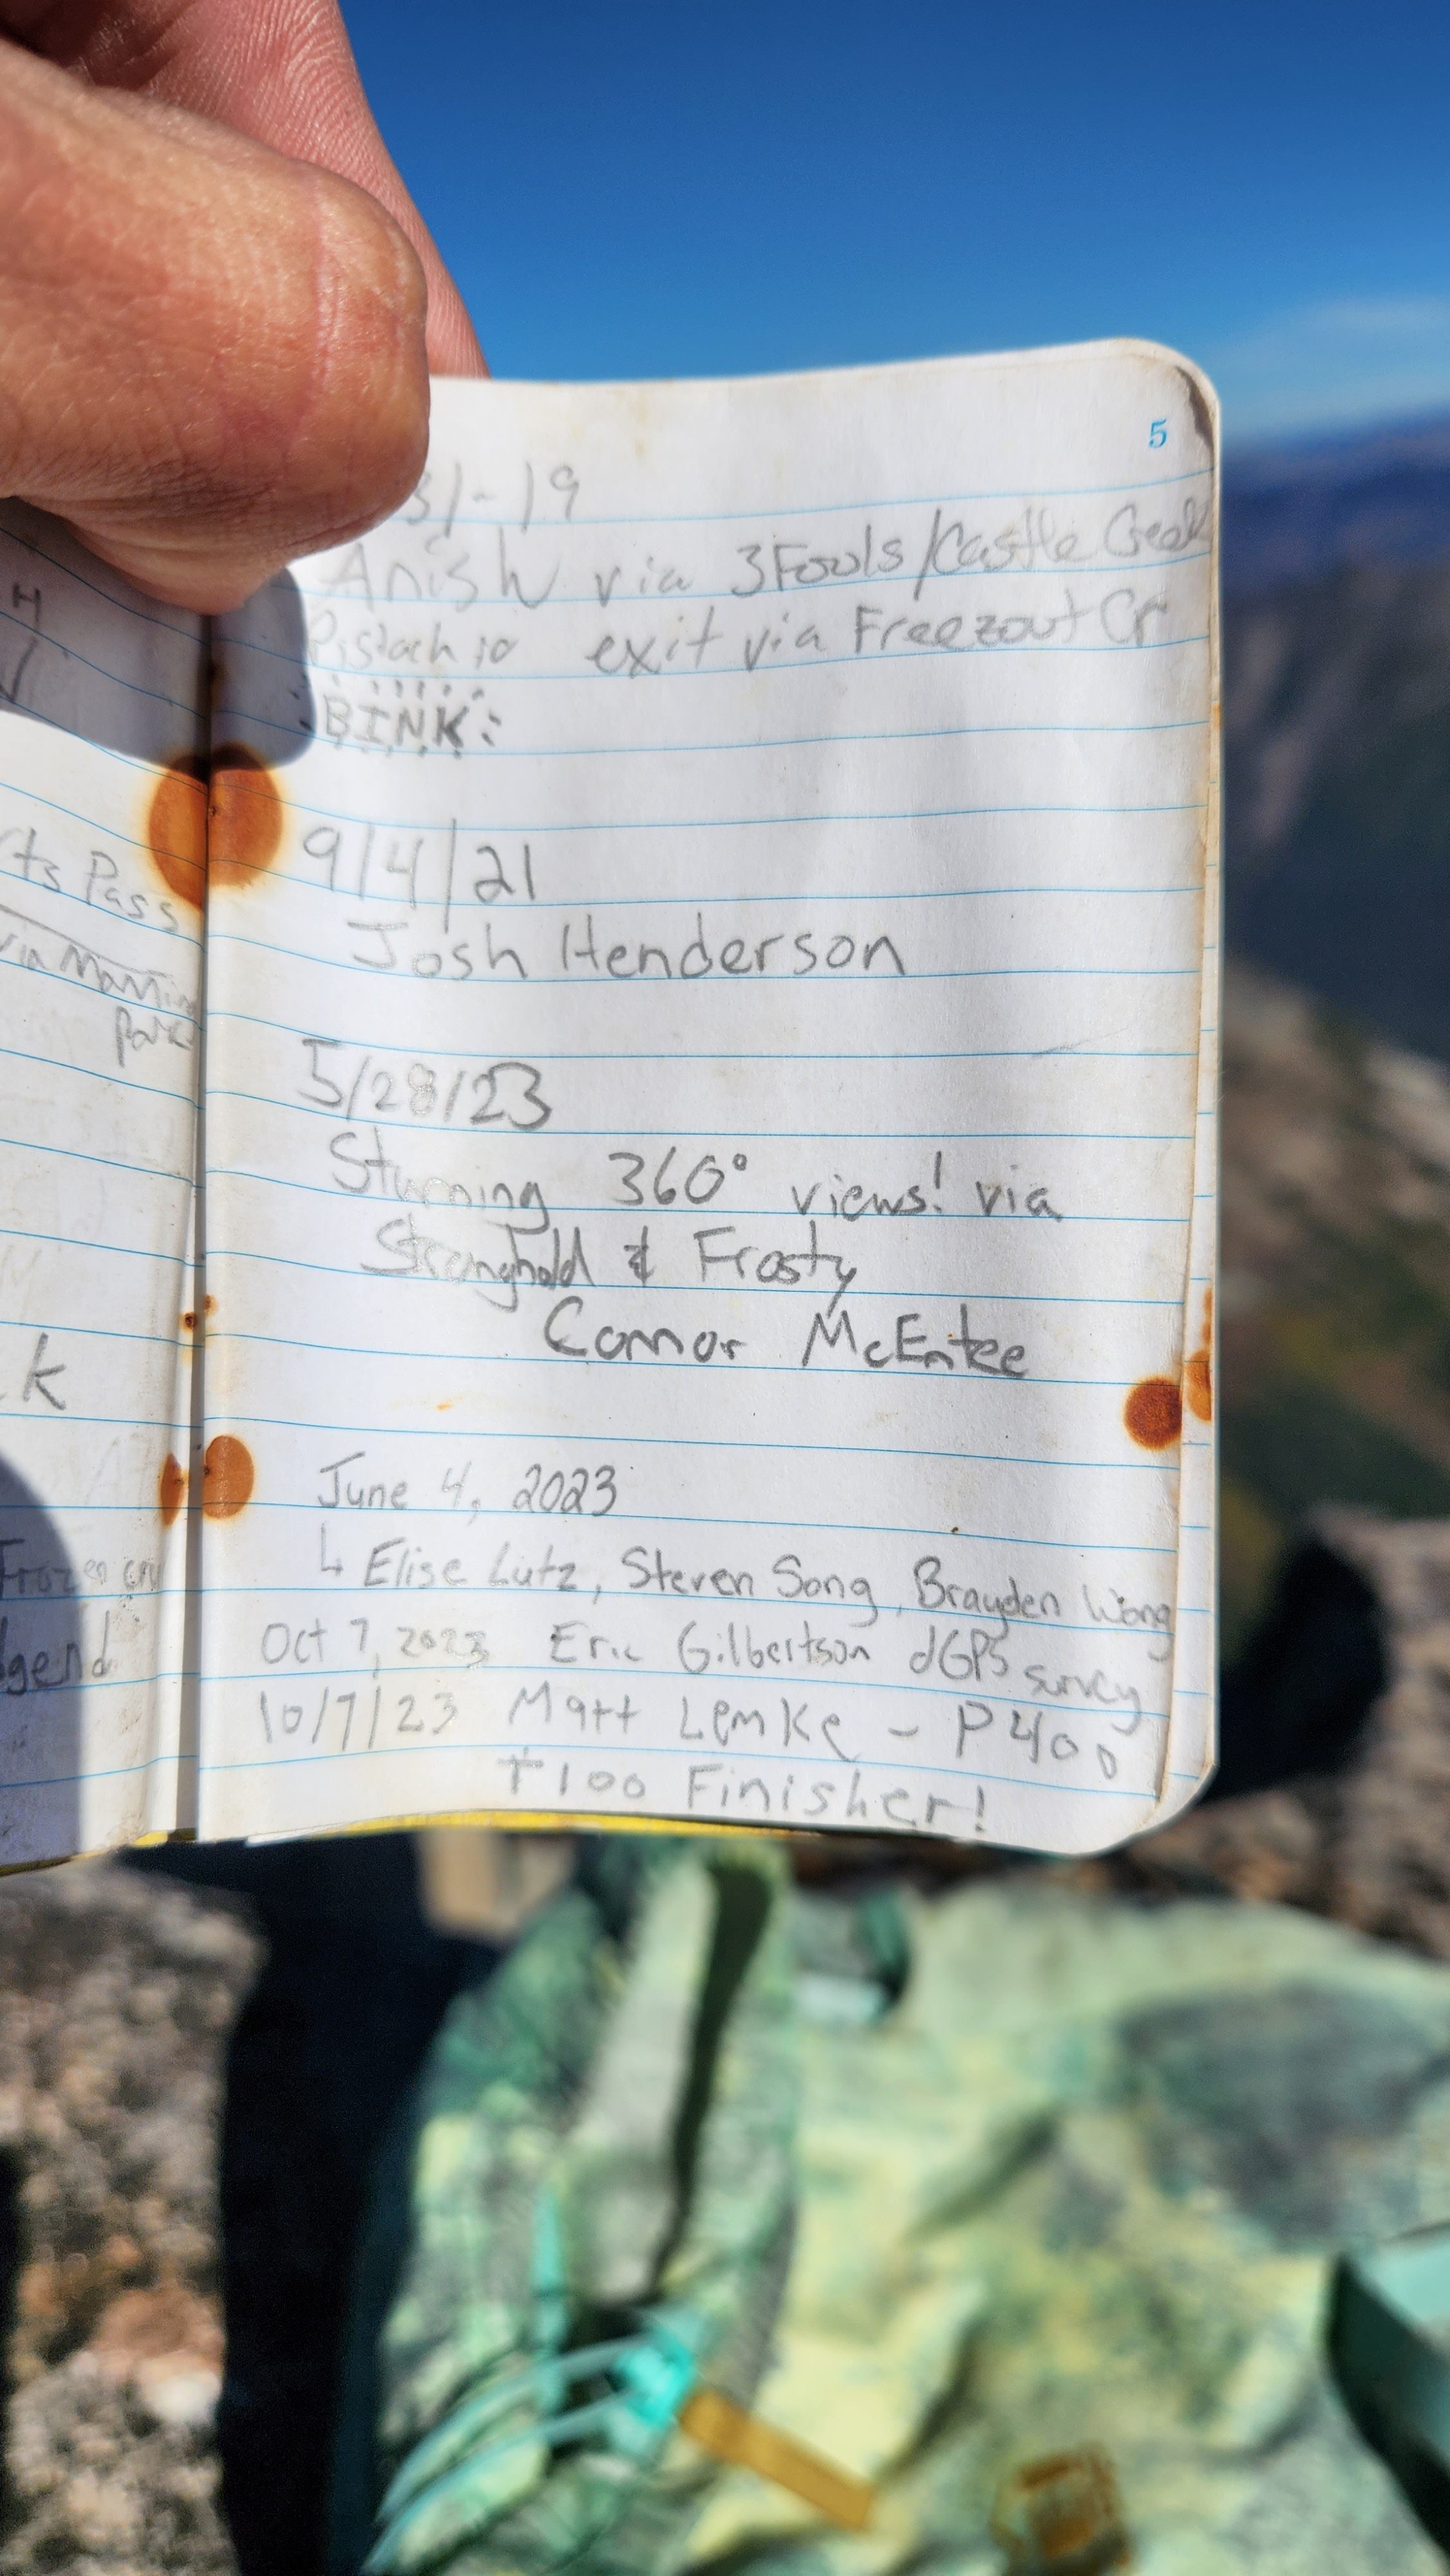 H
ts Pass
via Manning
Park
k
Frozen
gend
5
31-19
Anish via 3Fools/Castle Creek
Pistachio exit via Freezout Cr
BINK
9/4/21
Josh Henderson
5/28/23
Stunning 360° views! via
Stronghold & Frosty
Connor McEntee
June 4, 2023
↳ Elise Lutz, Steven Song, Brayden Wong
Oct 7, 2023 Eric Gilbertson dGPS survey
10/7/23 Matt Lemke - P400
T100 Finisher!